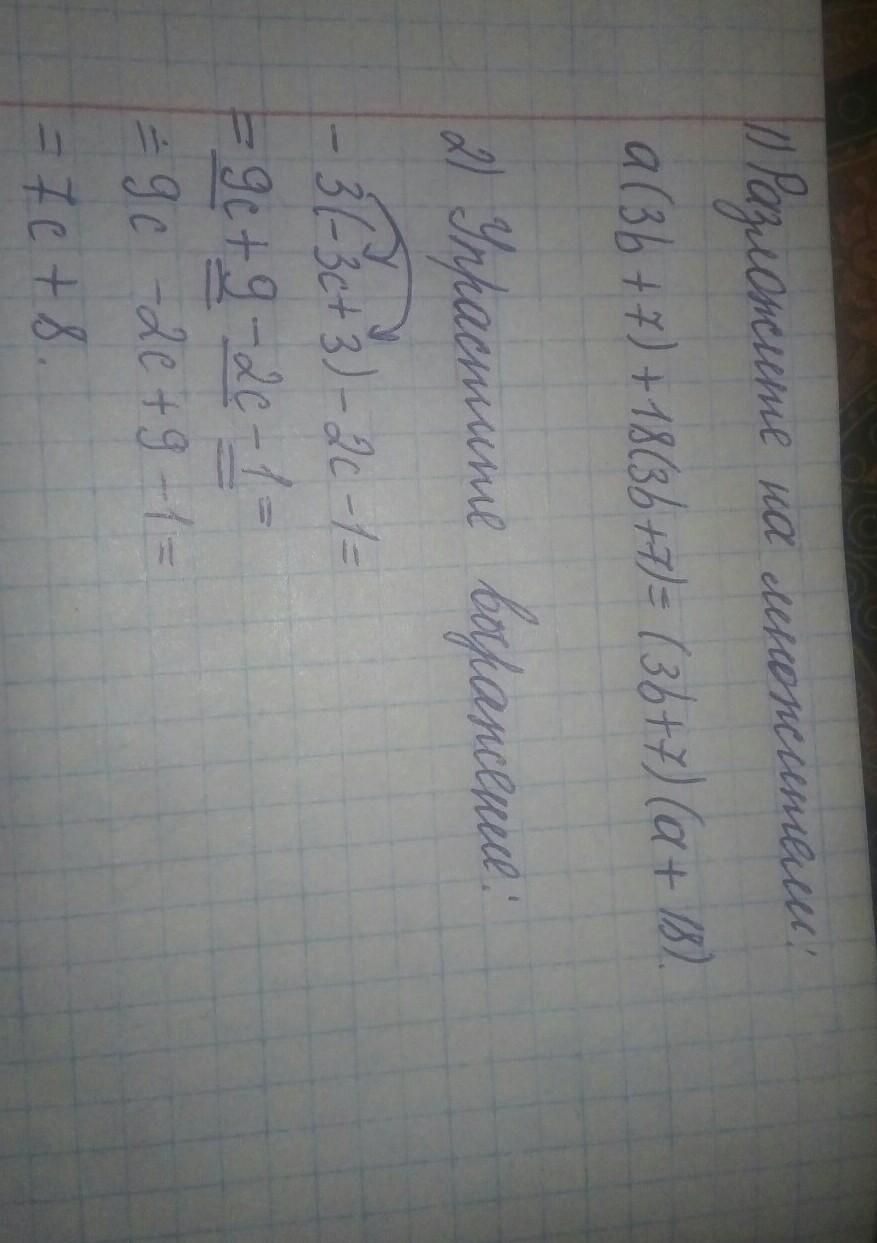 1) Разложите на множители:
a(3b+7)+18(3b+7)=(3b+7)(a+18).
2) Упрастите выражение:
-3(-3c+3)-2c-1=
=9c+9-2c-1=
=9c-2c+9-1=
=7c+8.